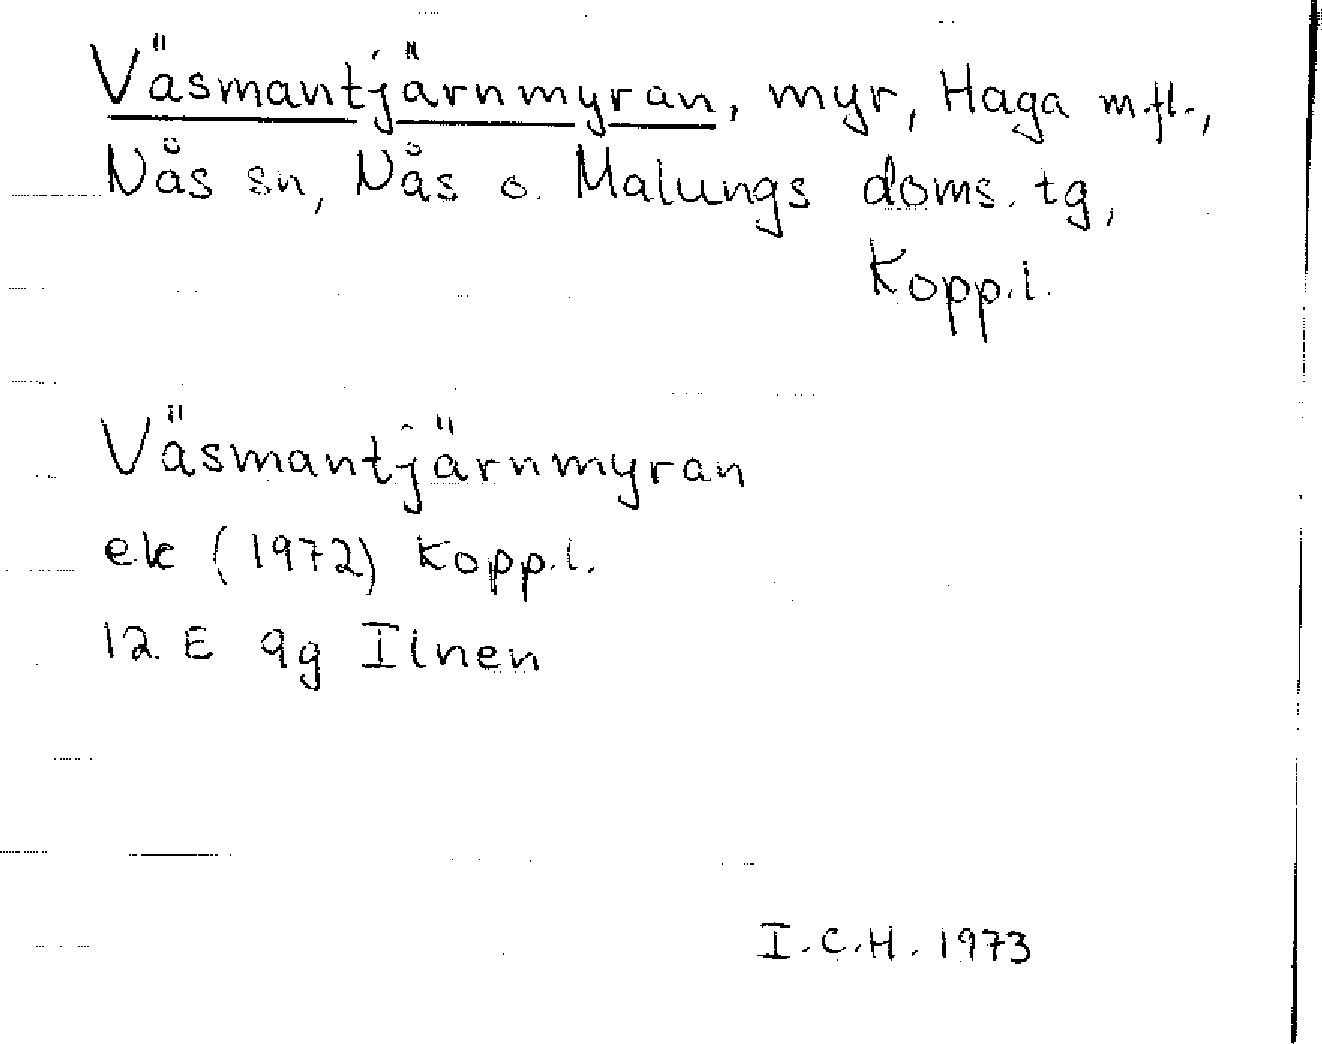 Väsmantjärnmyran, myr, Haga m.fl.,
Nås sn, Nås o. Malungs doms. tg,
Kopp.l.
Väsmantjärnmyran
ek (1972) Kopp.l.
12 E 9g Ilnen
I.C.H. 1973